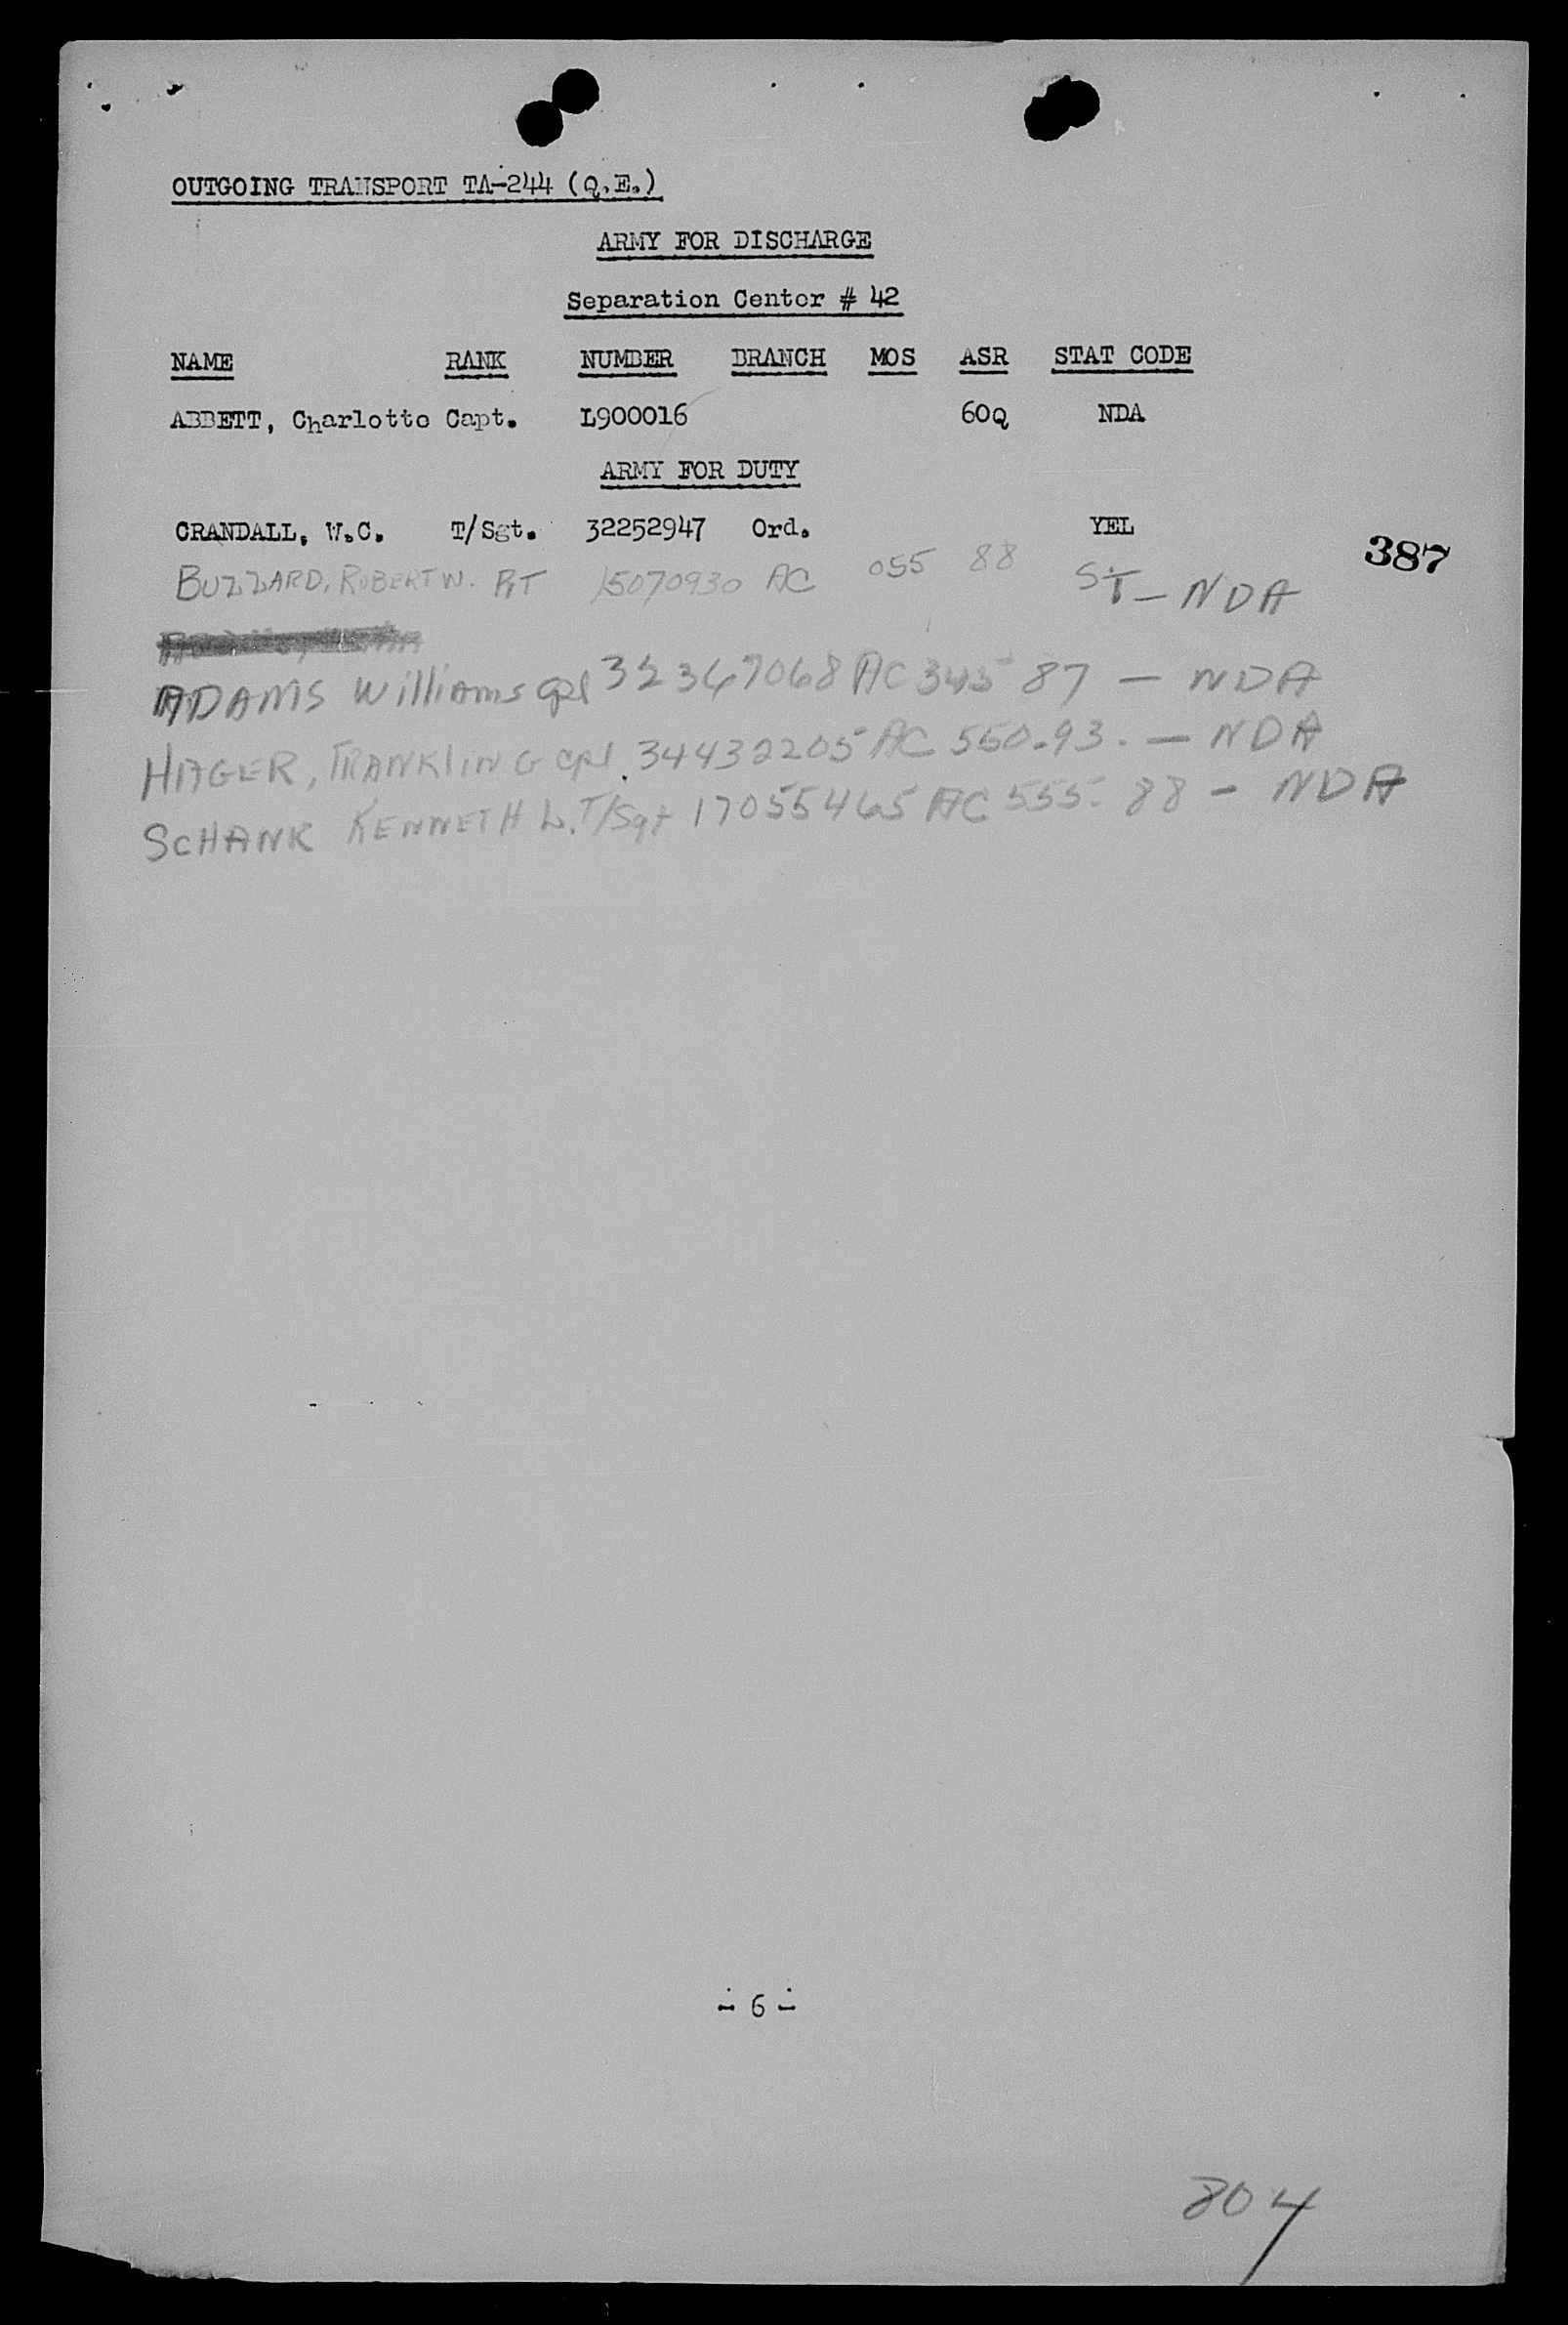 OUTGOING TRANSPORT TA-244 (Q.E.)
ARMY FOR DISCHARGE
Separation Center # 42
NAME RANK NUMBER BRANCH MOS ASR STAT CODE
ABBETT, Charlotte Capt. L900016 60Q NDA
ARMY FOR DUTY
CRANDALL, W.C. T/Sgt. 32252947 Ord. YEL
387
BUZZARD, ROBERT W. PVT 15070930 AC 055 88 ST - NDA
ADAMS Williams Cpl 32367068 AC 345 87 - NDA
HAGER, FRANKLIN G Cpl. 34432205 AC 550-93. - NDA
SCHANK KENNETH L. T/Sgt 17055465 AC 555- 88 - NDA
- 6 -
804